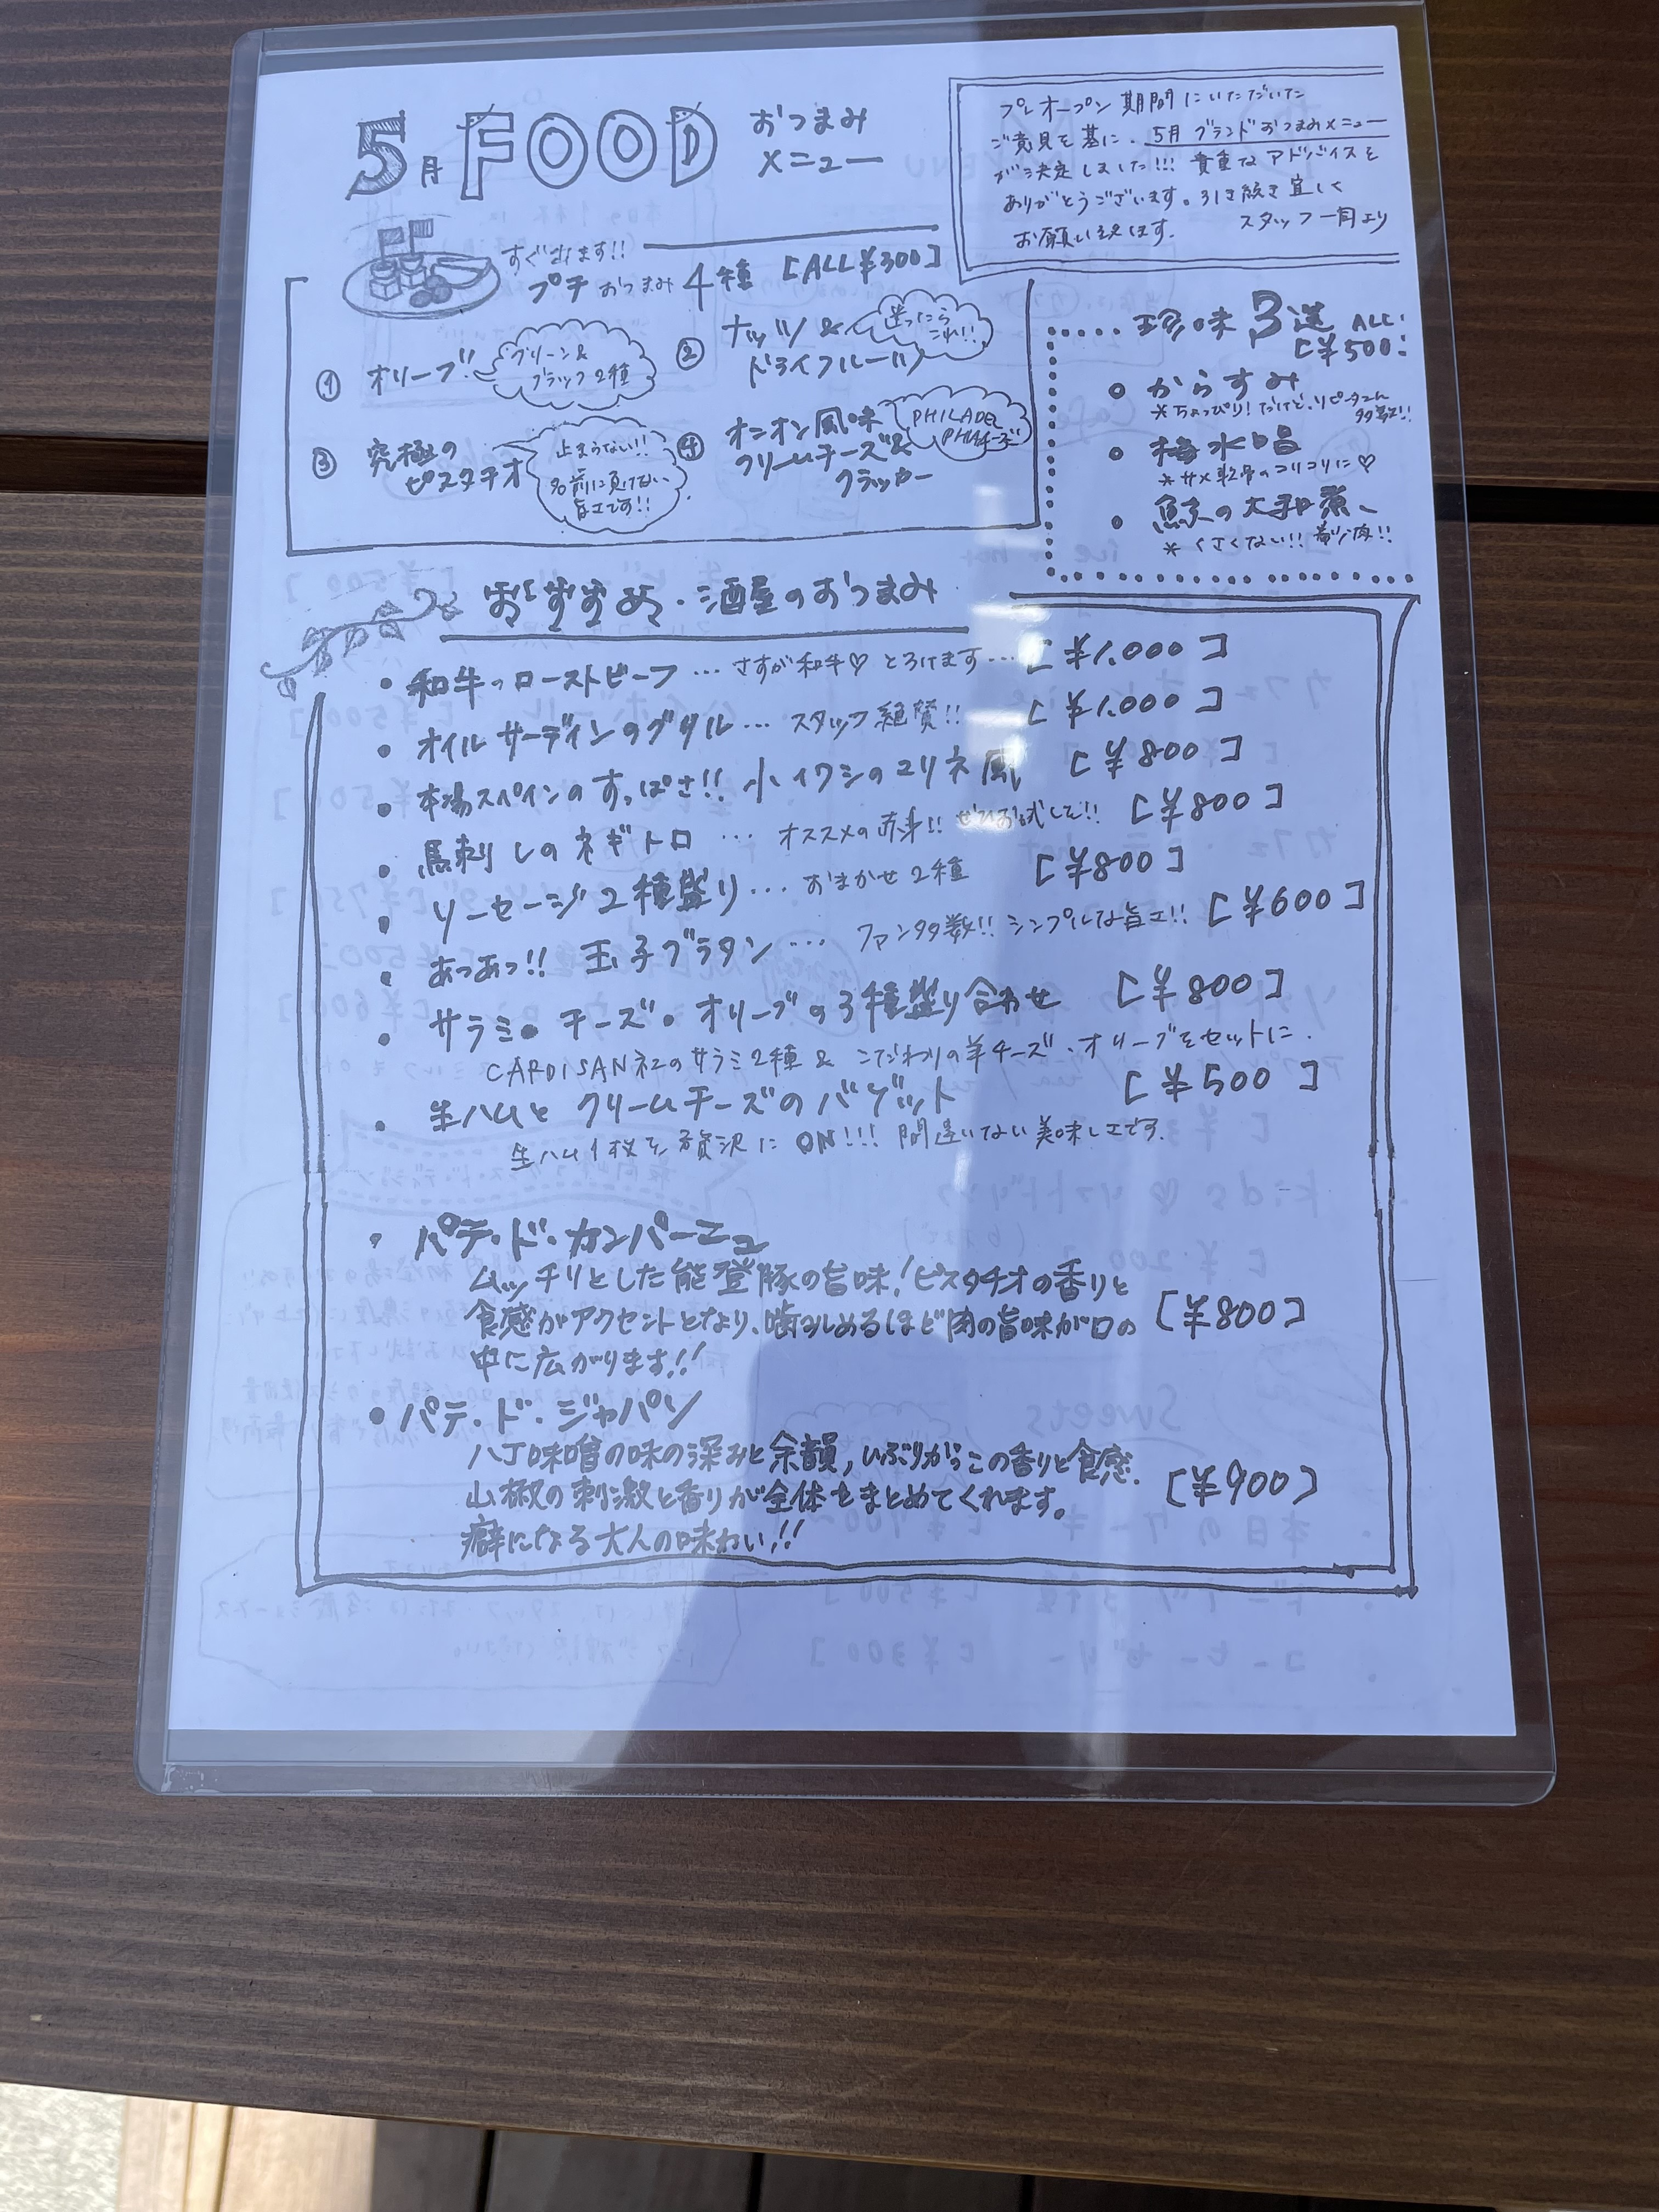 5月 FOOD おつまみ
メニュー
プレオープン期間にいただいた
ご意見を基に、5月グランドおつまみメニュー
が決定しました!!! 貴重なアドバイスを
ありがとうございます。引き続き宜しく
お願い致します。 スタッフ一同より
すぐ出ます!!
プチおつまみ4種 [ALL ¥300]
① オリーブ!!
グリーン&
ブラック2種
② ナッツ&
ドライフルーツ
迷ったら
これ!!
③ 究極の
ピスタチオ
止まらない!!
名前に負けない
旨さです!!
④ オニオン風味
クリームチーズ&
クラッカー
PHILADEL
PHIAチーズ
珍味3選 ALL
[¥500]
• からすみ
*ちょっぴり!だけど、リピーターさん
多数!!
• 梅水晶
*サメ軟骨のコリコリに♡
• 鯨の大和煮
*くさくない!!
おすすめ・酒屋のおつまみ
• 和牛のローストビーフ … さすが和牛♡ とろけます… [¥1.000]
• オイルサーディンのグリル … スタッフ絶賛!! [¥1.000]
• 本場スペインのすっぱさ!! 小イワシのマリネ風 [¥800]
• 馬刺しのネギトロ … オススメの赤身!! ぜひお試しを!! [¥800]
• ソーセージ2種盛り … おまかせ2種 [¥800]
• あつあつ!! 玉子グラタン … ファン多数!! シンプルな旨さ!! [¥600]
• サラミ・チーズ・オリーブの3種盛り合わせ [¥800]
CARDISAN社のサラミ2種& こだわりの羊チーズ・オリーブをセットに.
• 生ハムとクリームチーズのバゲット [¥500]
生ハム1枚を贅沢にON!!! 間違いない美味しさです.
• パテ・ド・カンパーニュ
ムッチリとした能登豚の旨味!ピスタチオの香りと
食感がアクセントとなり、噛みしめるほど肉の旨味が口の [¥800]
中に広がります!!
• パテ・ド・ジャパン
八丁味噌の味の深みと余韻,いぶりがっこの香りと食感.
山椒の刺激と香りが全体をまとめてくれます。 [¥900]
癖になる大人の味わい!!